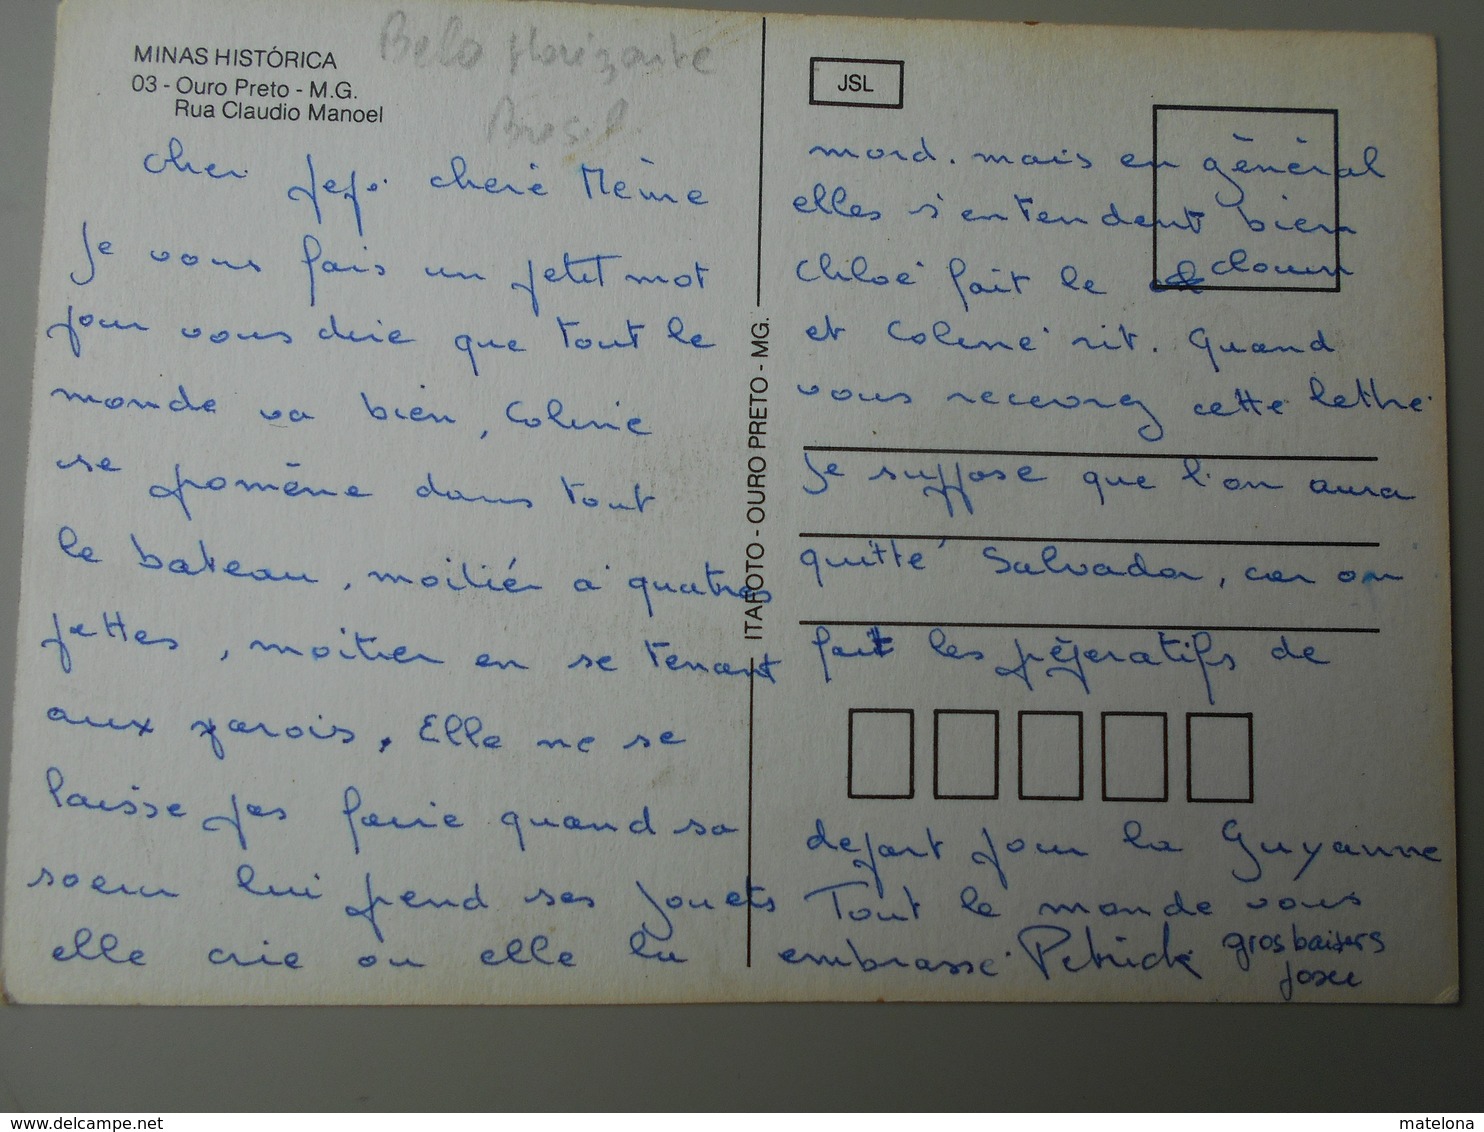 MINAS HISTÓRICA
03 - Ouro Preto - M.G.
Rua Claudio Manoel
Belo Horizonte
Bresil
JSL
ITAFOTO - OURO PRETO - MG.
cher pepé cheré Mème
Je vous fais un petit mot
pour vous dire que tout le
monde va bien, Coline
se pomène dans tout
le bateau, moitiér à quatres
pattes, moitier en se tenant
aux parois. Elle ne se
laisse pas faire quand sa
soeur lui prend ses jouets
elle crie ou elle la
mord. mais en général
elles s'entendent bien
Chloé fait le clown
et Coline rit. Quand
vous recevrez cette lettre
Je suppose que l'on aura
quitté Salvador, car on
fait les péperatifs de
depart pour la Guyanne
Tout le monde vous
embrasse. Patrick
gros baisers
Josee
www.delcampe.net
matelona